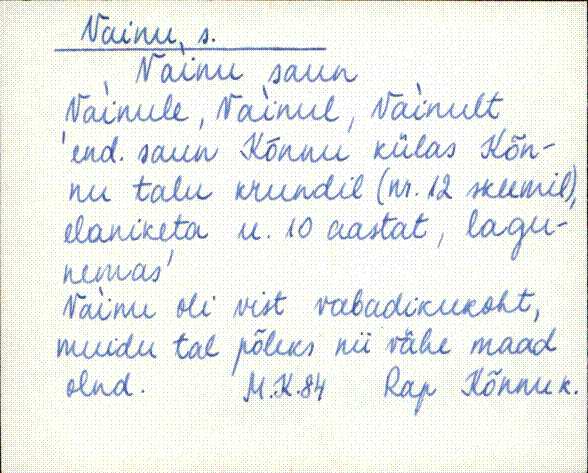 Vainu, s.
Vàinu saun
Vàinule, Vàinul, Vàinult
'end. saun Kõnnu külas Kõn-
nu talu krundil (nr. 12 skeemil),
elaniketa u. 10 aastat, lagu-
nemas'
Vàinu oli vist vabadikukoht,
muidu tal põleks nii vähe maad
olnd. M.K.84 Rap Kõnnu k.